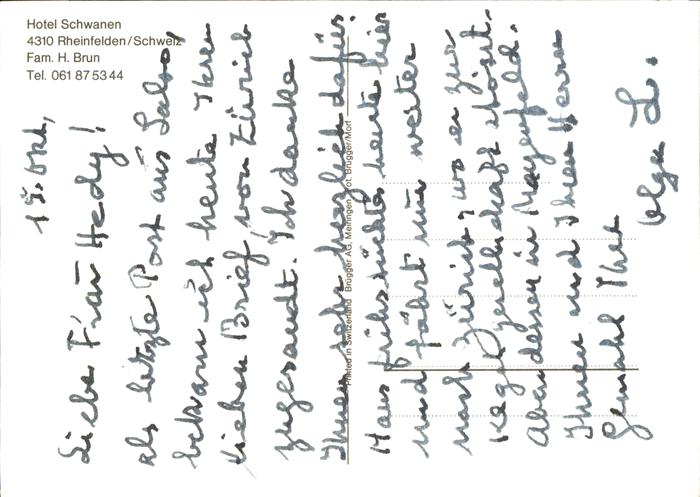 Hotel Schwanen
4310 Rheinfelden/Schweiz
Fam. H. Brun
Tel. 061 87 53 44
Okt,
Liebe Frau Hedy!
als letzte Post aus Salso,
bekam ich heute Ihren
lieben Brief von Zürich
zugesandt. Ich danke
Ihnen sehr herzlich dafür.
Hans frühstückte heute hier
und fährt nun weiter
nach Zürich, wo er zur
Kegelgesellschaft stösst.
Abendessen in Mayenfeld.
Ihnen und Ihrem Herrn
Gemahl Ihre
Olga L.
Printed in Switzerland Brügger AG, Meiringen Fot. Brügger/Morf